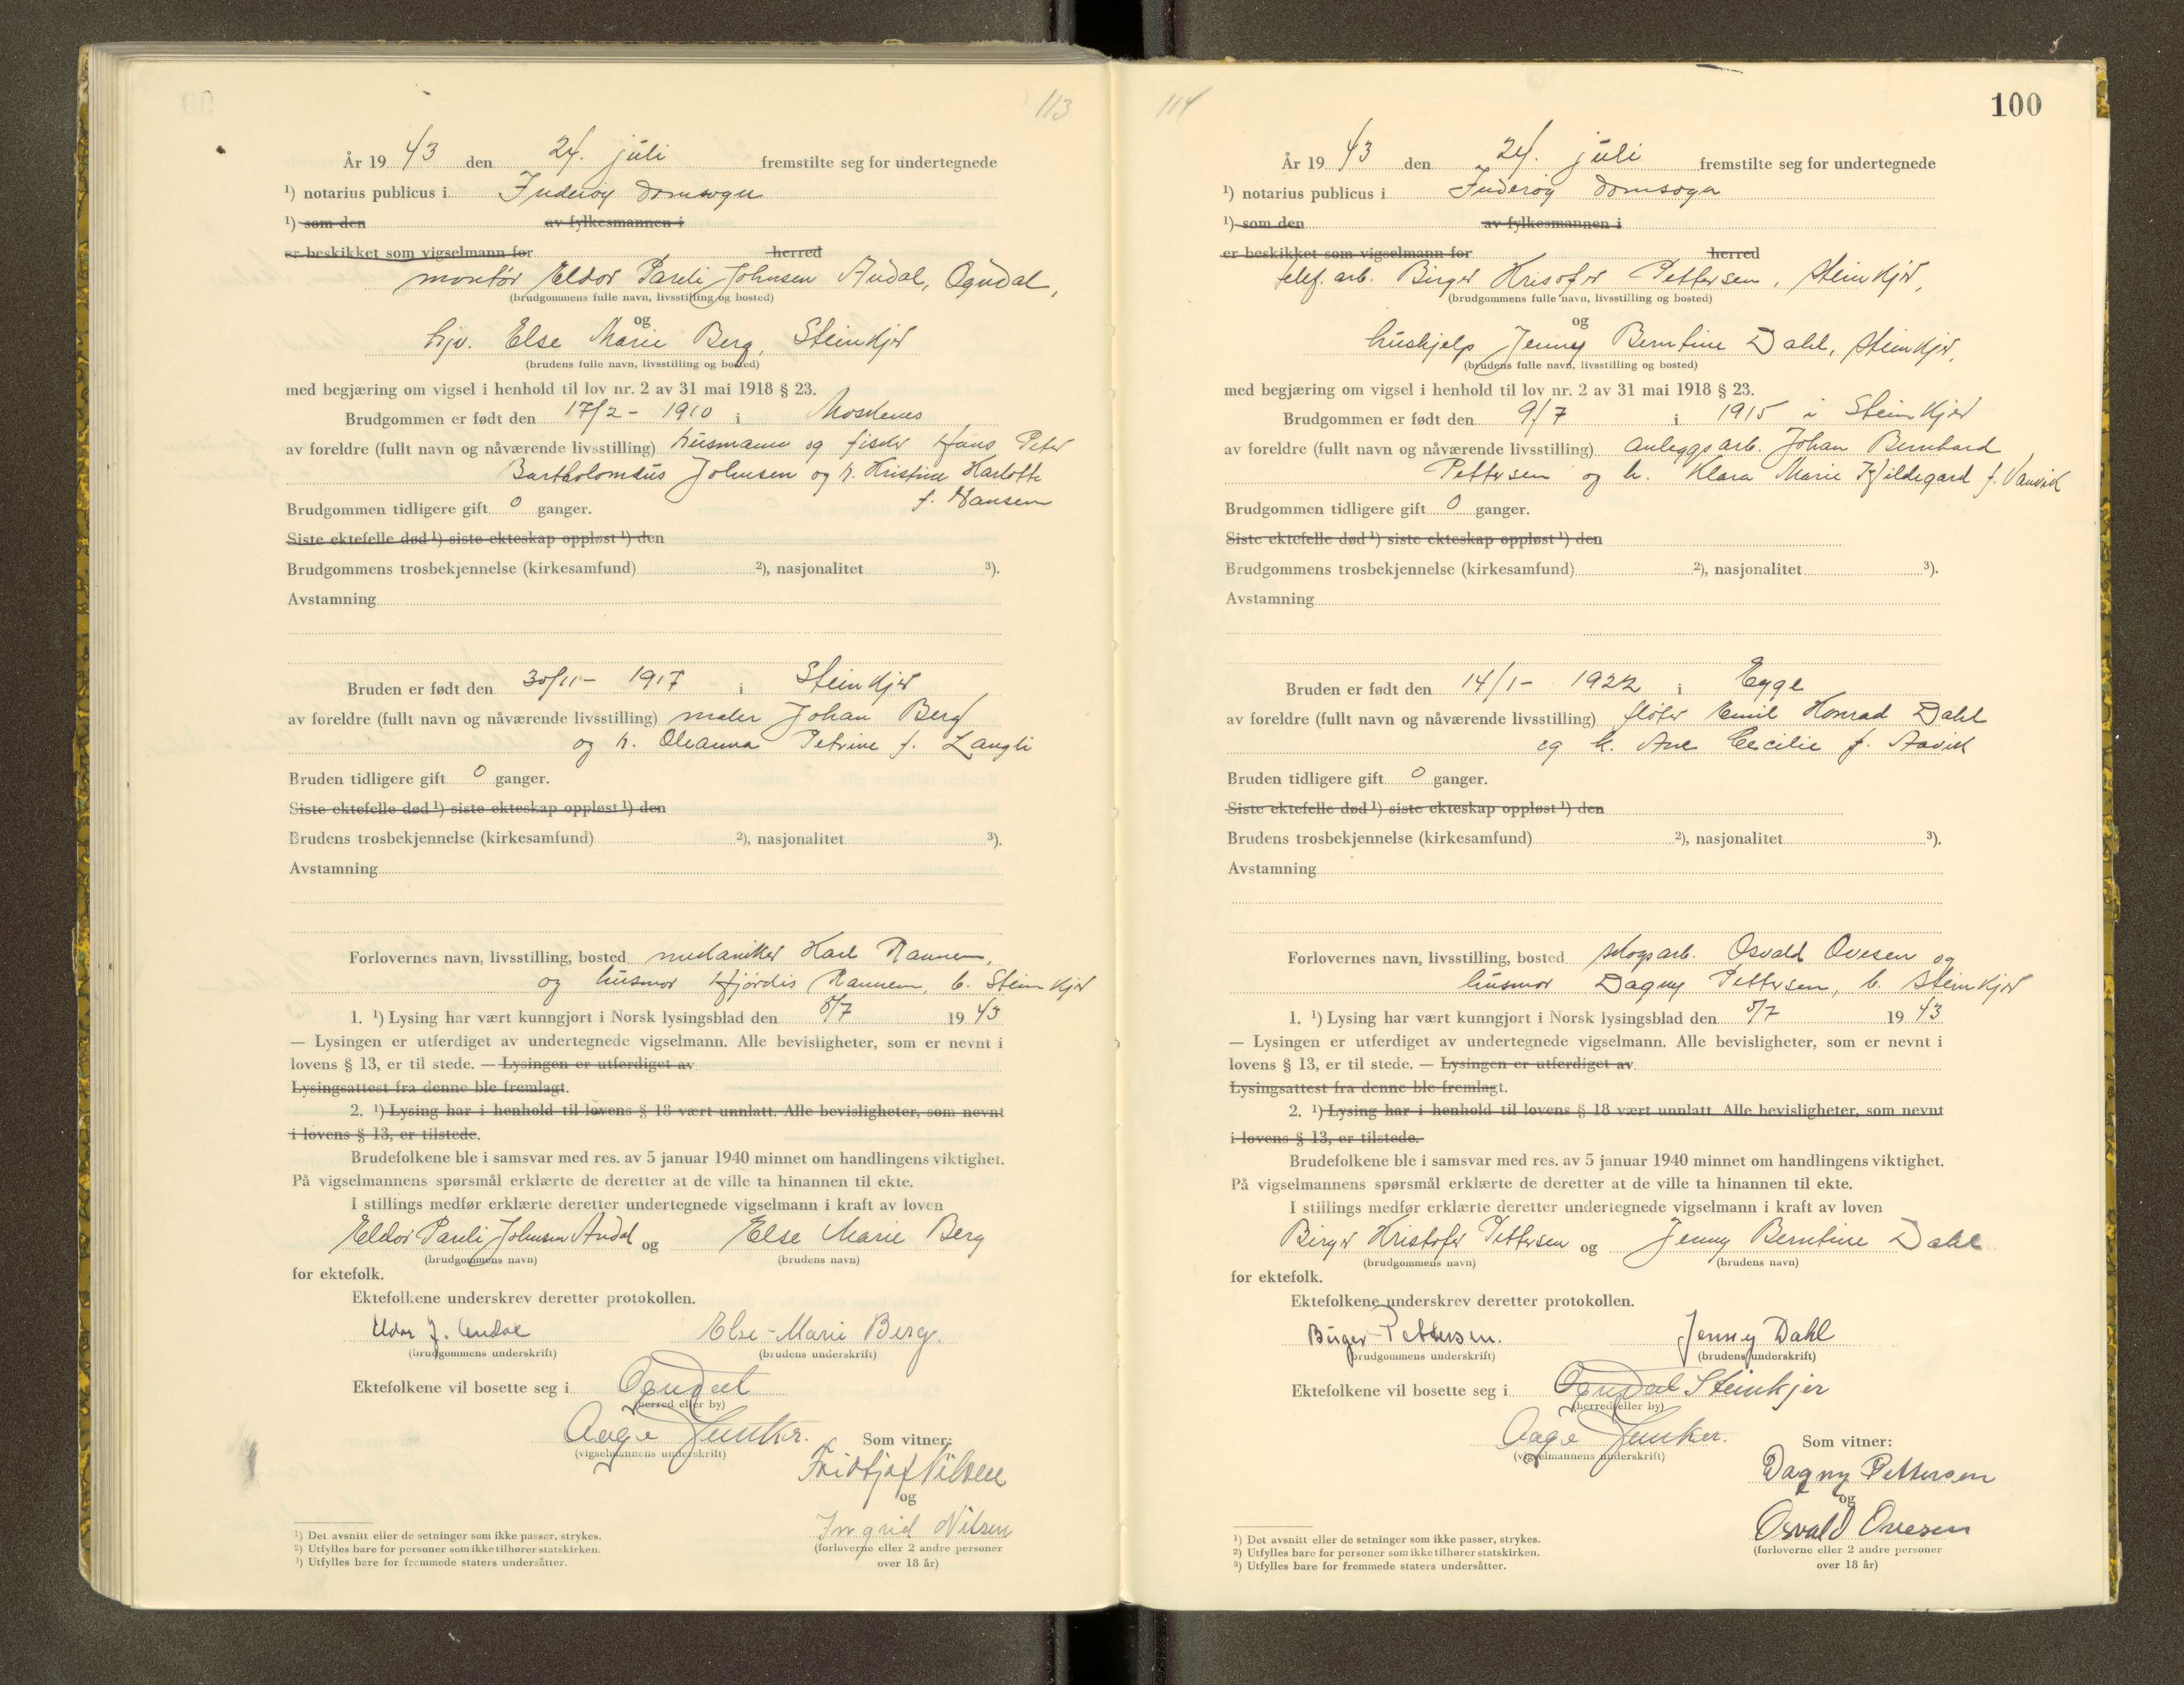 113
År 19 43 den 24. juli fremstilte seg for undertegnede
¹) notarius publicus i Inderøy domsogn
¹) som den av fylkesmannen i
er beskikket som vigselmann for herred
montør Eldor Pareli Johnsen Andal, Ogndal,
(brudgommens fulle navn, livsstilling og bosted)
og
hjv. Else Marie Berg, Steinkjer
(brudens fulle navn, livsstilling og bosted)
med begjæring om vigsel i henhold til lov nr. 2 av 31 mai 1918 § 23.
Brudgommen er født den 17/2 - 1910 i Moskenes
av foreldre (fullt navn og nåværende livsstilling) husmann og fisker Hans Peter
Bartholomäus Johnsen og h. Kristine Karlotte
f. Hansen
Brudgommen tidligere gift 0 ganger.
Siste ektefelle død ¹) siste ekteskap oppløst ¹) den
Brudgommens trosbekjennelse (kirkesamfund) ²), nasjonalitet ³).
Avstamning
Bruden er født den 30/11 - 1917 i Steinkjer
av foreldre (fullt navn og nåværende livsstilling) maler Johan Berg
og h. Oleanna Petrine f. Langli
Bruden tidligere gift 0 ganger.
Siste ektefelle død ¹) siste ekteskap oppløst ¹) den
Brudens trosbekjennelse (kirkesamfund) ²), nasjonalitet ³).
Avstamning
Forlovernes navn, livsstilling, bosted mekaniker Karl Rannem,
og husmor Hjørdis Rannem, b. Steinkjer
1. ¹) Lysing har vært kunngjort i Norsk lysingsblad den 8/7 19 43
— Lysingen er utferdiget av undertegnede vigselmann. Alle bevisligheter, som er nevnt i
lovens § 13, er til stede. — Lysingen er utferdiget av
Lysingsattest fra denne ble fremlagt.
2. ¹) Lysing har i henhold til lovens § 18 vært unnlatt. Alle bevisligheter, som nevnt
i lovens § 13, er tilstede.
Brudefolkene ble i samsvar med res. av 5 januar 1940 minnet om handlingens viktighet.
På vigselmannens spørsmål erklærte de deretter at de ville ta hinannen til ekte.
I stillings medfør erklærte deretter undertegnede vigselmann i kraft av loven
Eldor Pareli Johnsen Andal og Else Marie Berg
(brudgommens navn) (brudens navn)
for ektefolk.
Ektefolkene underskrev deretter protokollen.
Eldor J. Andal Else-Marie Berg.
(brudgommens underskrift) (brudens underskrift)
Ektefolkene vil bosette seg i Ogndal
(herred eller by)
Aage Junker.
(vigselmannens underskrift)
Som vitner:
Fridtjof Nilsen
og
Ingrid Nilsen
(forloverne eller 2 andre personer
over 18 år)
¹) Det avsnitt eller de setninger som ikke passer, strykes.
²) Utfylles bare for personer som ikke tilhører statskirken.
³) Utfylles bare for fremmede staters undersåtter.
114
100
År 19 43 den 24. juli fremstilte seg for undertegnede
¹) notarius publicus i Inderøy domsogn
¹) som den av fylkesmannen i
er beskikket som vigselmann for herred
telef. arb. Birger Krisofer Pettersen, Steinkjer,
(brudgommens fulle navn, livsstilling og bosted)
og
hushjelp Jenny Berntine Dahl, Steinkjer,
(brudens fulle navn, livsstilling og bosted)
med begjæring om vigsel i henhold til lov nr. 2 av 31 mai 1918 § 23.
Brudgommen er født den 9/7 i 1915 i Steinkjer
av foreldre (fullt navn og nåværende livsstilling) anleggsarb. Johan Bernhard
Pettersen og h. Klara Marie Hildegard f. Vanvik
Brudgommen tidligere gift 0 ganger.
Siste ektefelle død ¹) siste ekteskap oppløst ¹) den
Brudgommens trosbekjennelse (kirkesamfund) ²), nasjonalitet ³).
Avstamning
Bruden er født den 14/1 - 1922 i Egge
av foreldre (fullt navn og nåværende livsstilling) fløter Emil Konrad Dahl
og h. Ane Cecilie f. Aavik
Bruden tidligere gift 0 ganger.
Siste ektefelle død ¹) siste ekteskap oppløst ¹) den
Brudens trosbekjennelse (kirkesamfund) ²), nasjonalitet ³).
Avstamning
Forlovernes navn, livsstilling, bosted skogsarb. Osvald Ovesen og
husmor Dagny Pettersen, b. Steinkjer
1. ¹) Lysing har vært kunngjort i Norsk lysingsblad den 8/7 19 43
— Lysingen er utferdiget av undertegnede vigselmann. Alle bevisligheter, som er nevnt i
lovens § 13, er til stede. — Lysingen er utferdiget av
Lysingsattest fra denne ble fremlagt.
2. ¹) Lysing har i henhold til lovens § 18 vært unnlatt Alle bevisligheter, som nevnt
i lovens § 13, er tilstede.
Brudefolkene ble i samsvar med res. av 5 januar 1940 minnet om handlingens viktighet.
På vigselmannens spørsmål erklærte de deretter at de ville ta hinannen til ekte.
I stillings medfør erklærte deretter undertegnede vigselmann i kraft av loven
Birger Kristofer Pettersen og Jenny Berntine Dahl
(brudgommens navn) (brudens navn)
for ektefolk.
Ektefolkene underskrev deretter protokollen.
Birger Pettersen. Jenny Dahl
(brudgommens underskrift) (brudens underskrift)
Ektefolkene vil bosette seg i Ogndal Steinkjer
(herred eller by)
Aage Junker.
(vigselmannens underskrift)
Som vitner:
Dagny Pettersen
og
Osvald Ovesen
(forloverne eller 2 andre personer
over 18 år)
¹) Det avsnitt eller de setninger som ikke passer, strykes.
²) Utfylles bare for personer som ikke tilhører statskirken.
³) Utfylles bare for fremmede staters undersåtter.